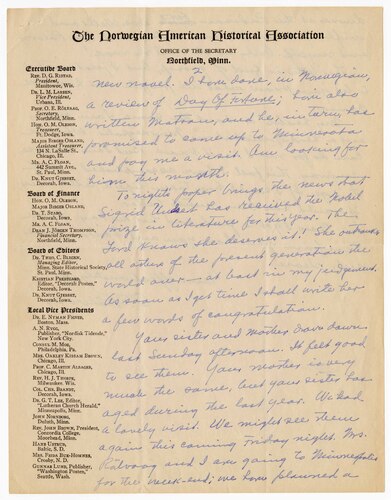 The Norwegian American Historical Association
OFFICE OF THE SECRETARY
Northfield, Minn.
Executive Board
REV. D. G. RISTAD,
President,
Manitowoc, Wis.
DR. L. M. LARSEN,
Vice President,
Urbana, Ill.
PROF. O. E. ROLVAAG,
Secretary,
Northfield, Minn.
HON. O. M. OLESON,
Treasurer,
Ft. Dodge, Iowa.
MAJOR BIRGER OSLAND,
Assistant Treasurer,
134 N. La Salle St.,
Chicago, Ill.
MR. A. C. FLOAN,
442 Summit Ave.,
St. Paul, Minn.
DR. KNUT GJERSET,
Decorah, Iowa.
Board of Finance
HON. O. M. OLESON.
MAJOR BIRGER OSLAND.
DR. T. STABO,
Decorah, Iowa.
MR. A. C. FLOAN.
DEAN J. JORGEN THOMPSON,
Financial Secretary,
Northfield, Minn.
Board of Editors
DR. THEO. C. BLEGEN,
Managing Editor,
Minn. State Historical Society,
St. Paul, Minn.
KRISTIAN PRESTGARD,
Editor, "Decorah Posten",
Decorah, Iowa.
DR. KNUT GJERSET,
Decorah, Iowa.
Local Vice Presidents
Boston, Mass.
A. N. RYGG,
Publisher, "Nordisk Tidende,"
New York City.
Philadelphia, Pa.
Chicago, Ill.
Chicago, Ill.
REV. H. J. THORPE,
Milwaukee, Wis.
COL. CHR. BRANDT,
Decorah, Iowa.
DR. G. T. LEE, Editor,
"Lutheran Church Herald,"
Minneapolis, Minn.
Duluth, Minn.
REV. JOHN BROWN, President,
Concordia College,
Moorhead, Minn.
Baltic, S. D.
MRS. FRIDA BUE-HOMNES,
Crosby, N. D.
GUNNAR LUND, Publisher,
"Washington Posten,"
Seattle, Wash.
2
new novel. I have done, in Norwegian,
a review of Day of Fortune; have also
written Matson, and he, in turn, has
promised to come up to Minnesota
and pay me a visit. Am looking for
him this month.
Tonight's paper brings the news that
Sigrid Undset has received the Nobel
prize in literature for this year. The
Lord knows she deserves it! She outranks
all others of the present generation the
world over — at least in my judgment.
As soon as I get time I shall write her
a few words of congratulation.
Your sister and mother were down
last Sunday afternoon. It felt good
to see them. Your mother is very
much the same, but your sister has
aged during the last year. We had
a lovely visit. We might see them
again this coming Friday night. Mrs.
Rolvaag and I am going to Minneapolis
for the week-end; we have planned a